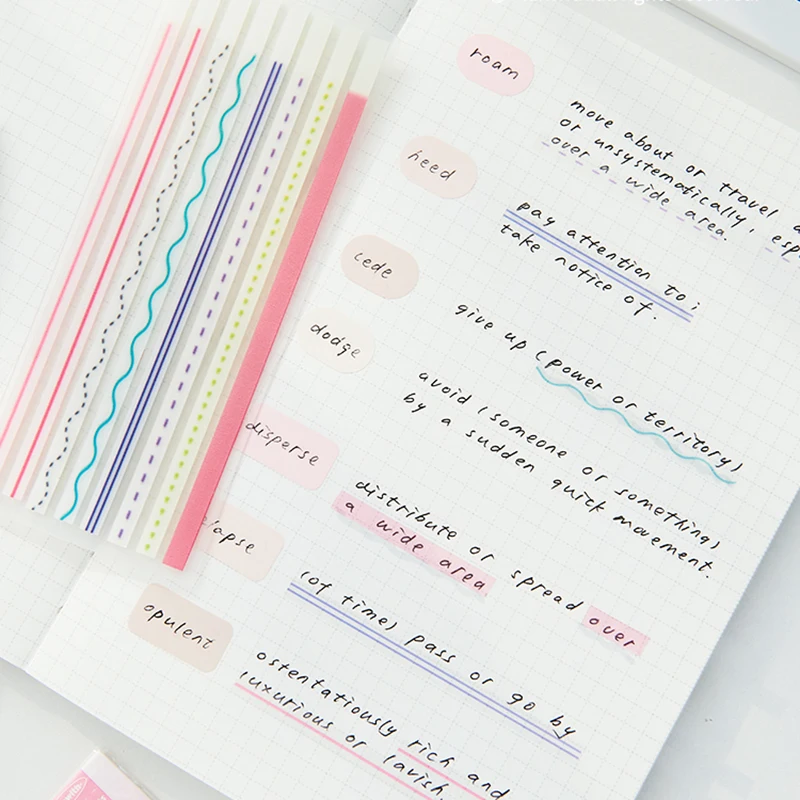 roam
move about or travel
or unsystematically, esp
over a wide area.
heed
pay attention to;
take notice of.
cede
give up (power or territory)
dodge
avoid (someone or something)
by a sudden quick movement.
disperse
distribute or spread over
a wide area.
lapse
(of time) pass or go by
opulent
ostentatiously rich and
luxurious or lavish.